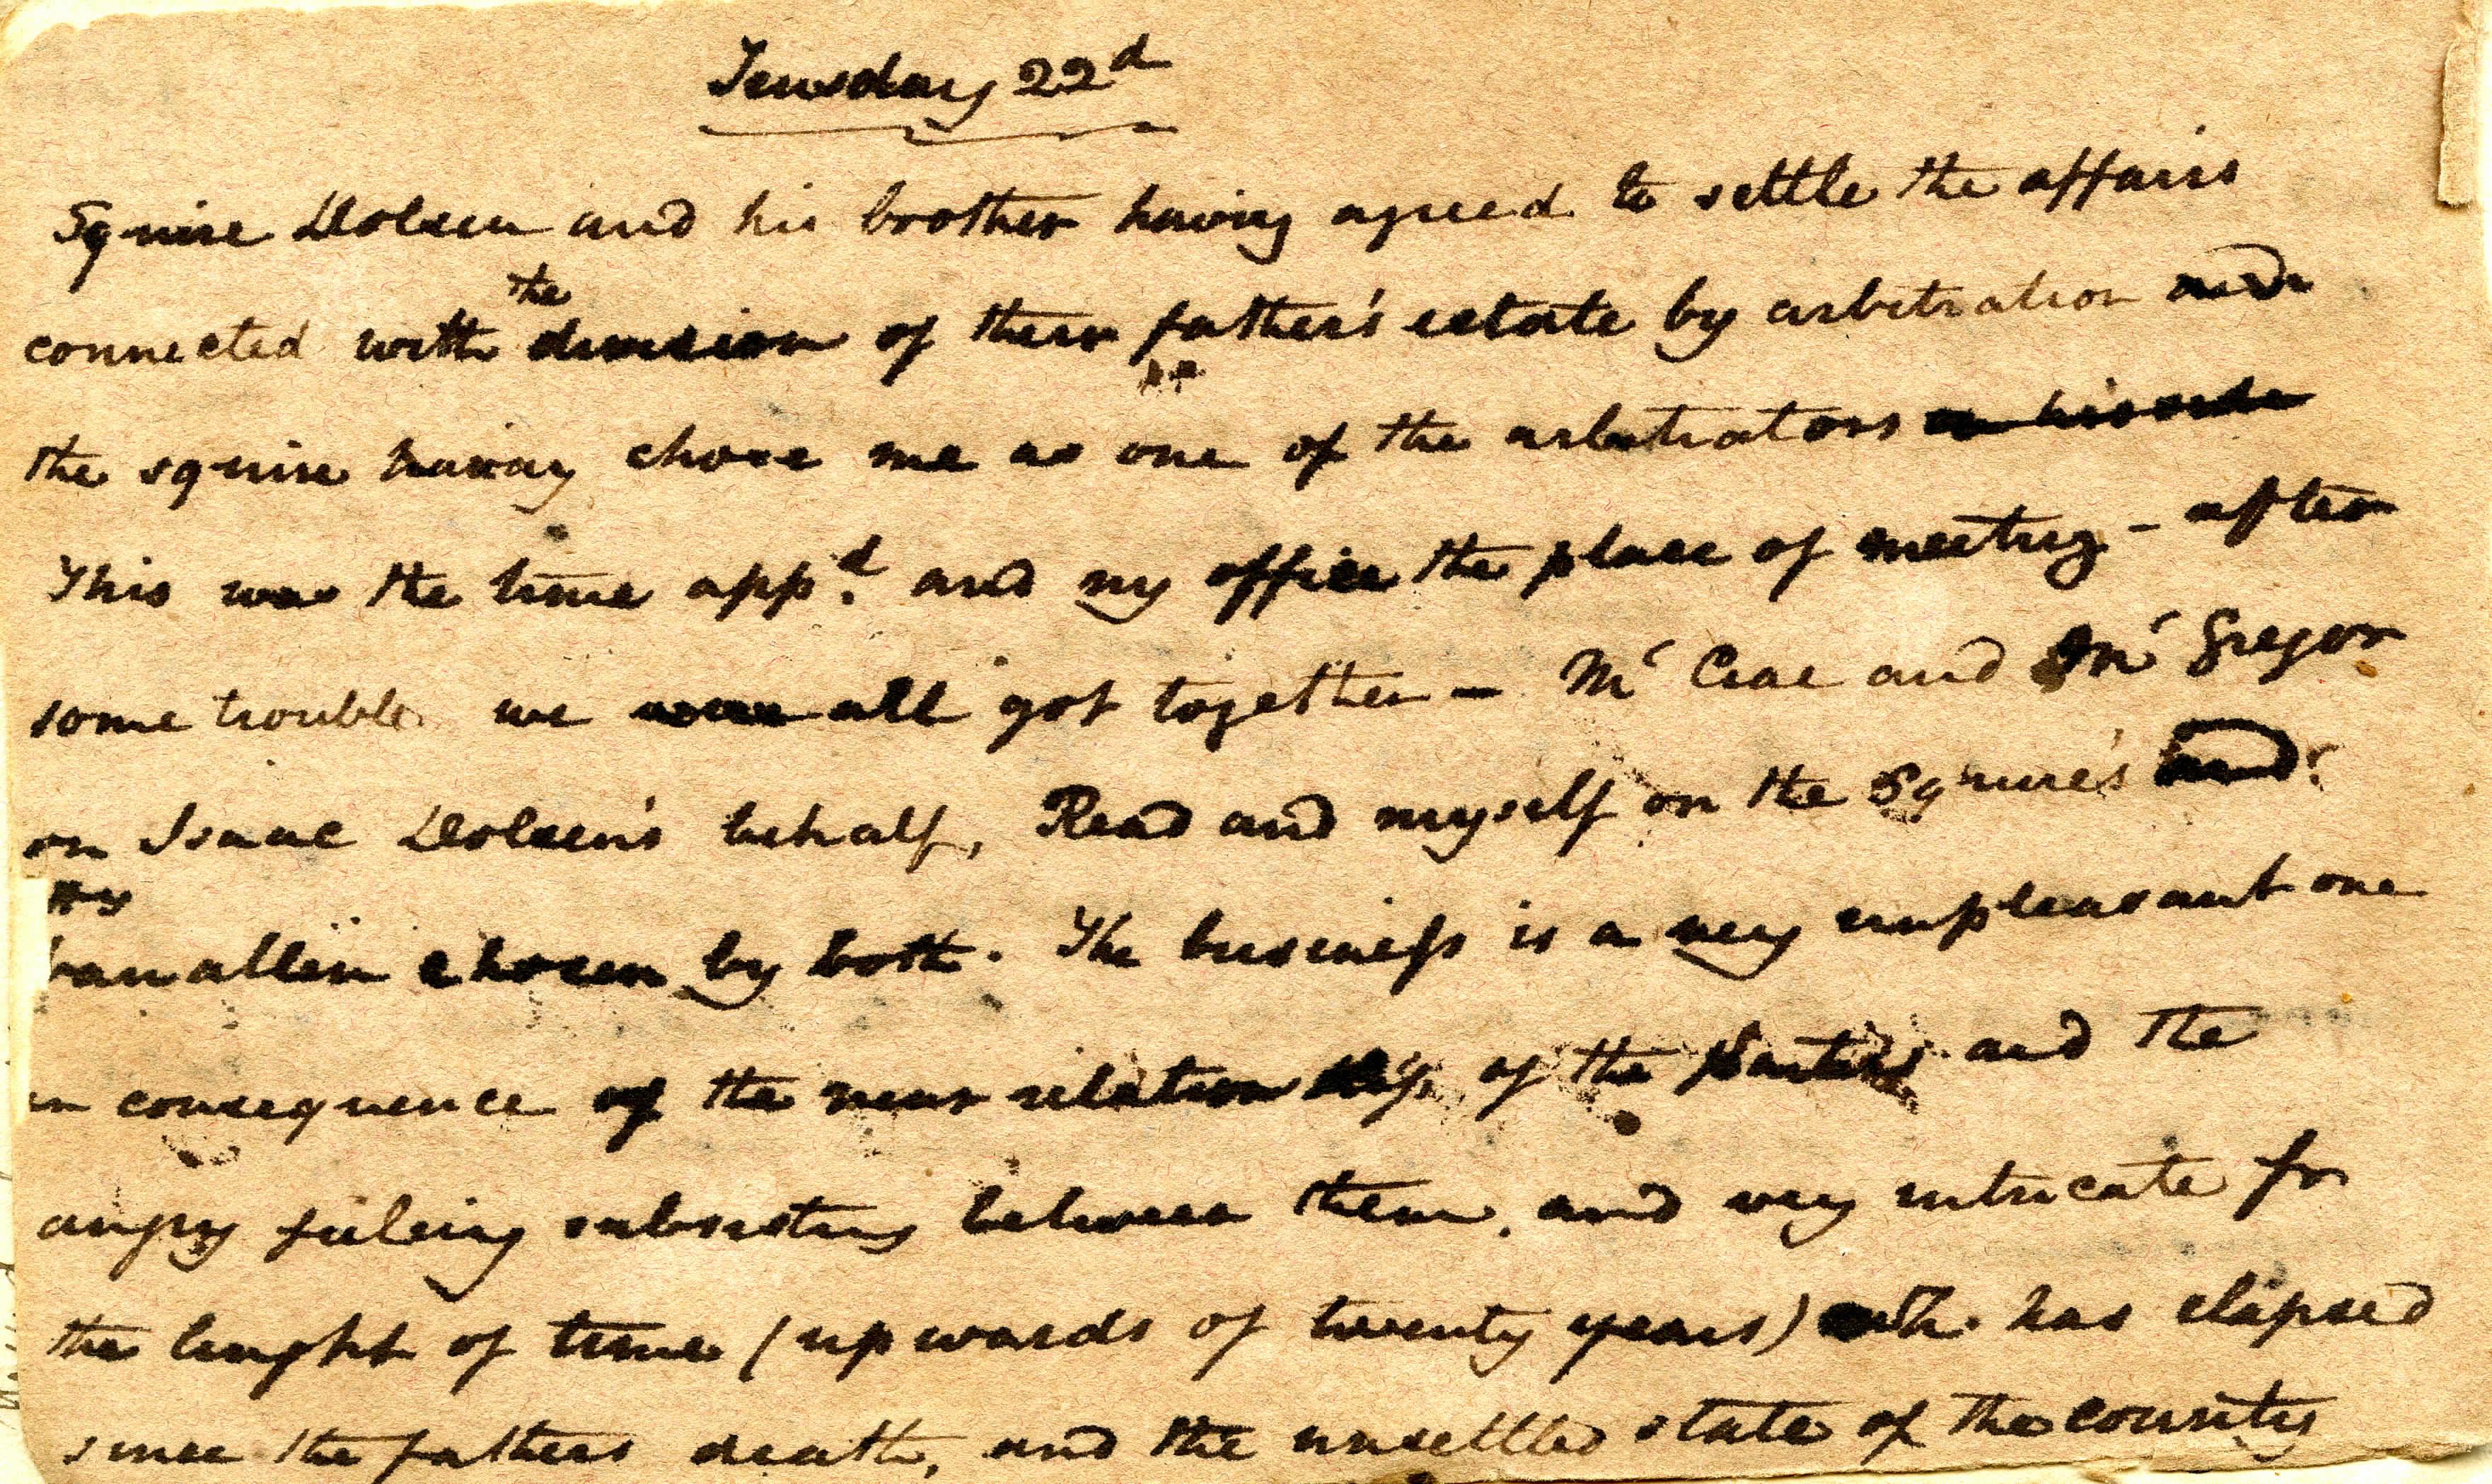 Teusday 22d
Squire Dolsen and his brother having agreed to settle the affairs
connected with the division of their father's estate by arbitration and
he
the squire having chose me as one of the arbitrators on his side
This was the time appd. and my office the place of meeting - after
some trouble we were all got together - Mc Crae and Mc Gregor
on Isaac Dolsen's behalf, Read and myself on the Squire's and
Vanallen chosen by both. The business is a very unpleasant one
in consequence of the near relation ship of the parties and the
angry feeling subsisting between them, and very intricate for
the lenght of time (upwards of twenty years) wh. has elapsed
since the fathers death, and the unsettled state of the country